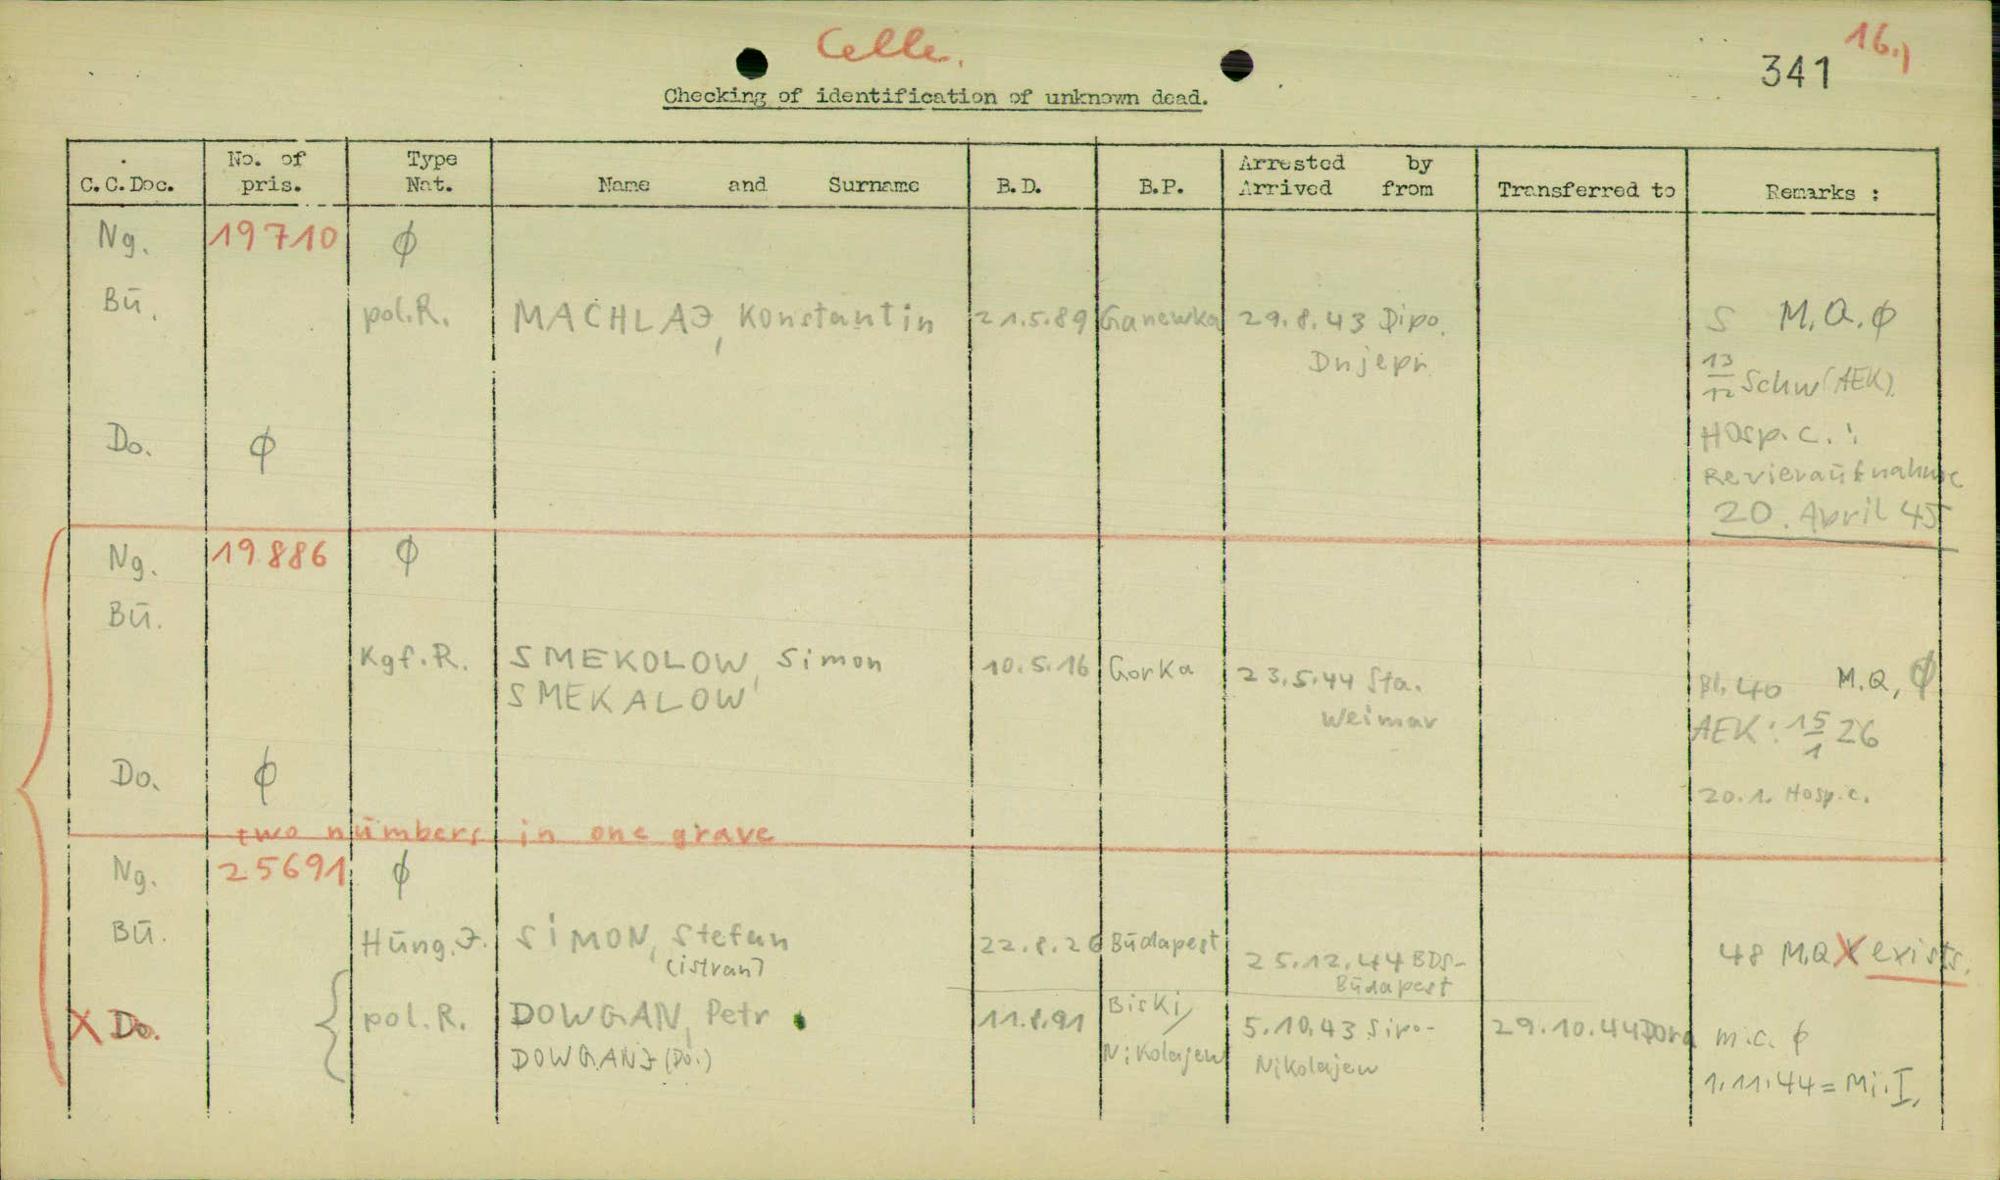 Celle.
16.)
341
Checking of identification of unknown dead.
C.C.Doc. No. of pris. Type Nat. Name and Surname B.D. B.P. Arrested by Arrived from Transferred to Remarks :
Ng. 19710 ϕ
Bū. pol.R. MACHLAJ, Konstantin 21.5.89 Ganewka 29.8.43 Dipo. S M.Q. ϕ
Dnjepr 13/12 Schw (AEK).
Do. ϕ Hosp.c.:
Revieraūfnahme
20. April 45
Ng. 19886 ϕ
Bū.
Kgf.R. SMEKOLOW, Simon 10.5.16 Gorka 23.5.44 Sta. Bl. 40 M.Q, ϕ
SMEKALOW Weimar AEK: 15/1 26
Do. ϕ 20.1. Hosp.c.
two nūmbers in one grave
Ng. 25691 ϕ
Bū. Hūng.J. SIMON, Stefan 22.8.26 Būdapest 25.12.44 BDS- 48 M.Q X exists.
(istvan) Būdapest
X Do. pol.R. DOWGAN, Petr 11.8.91 Biski/ 5.10.43 Sipo- 29.10.44 Dora m.c. ϕ
DOWGANJ (Do.) Nikolajew Nikolajew 1.11.44 = Mi.I.